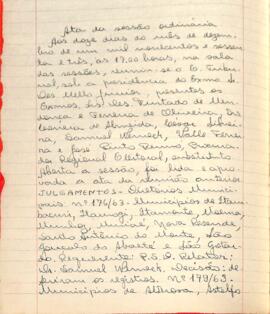 Ata da sessão ordinária
Aos doze dias do mês de dezem-
bro de um mil novecentos e sessen-
ta e três, às 17,00 horas, na sala
das sessões, reuniu-se o E. Tribu-
nal, sob a presidência do Exmo. S.
Des. Mello Júnior, presentes os
Exmos. Srs. Des. Furtado de Men-
donça e Ferreira de Oliveira, Drs.
de Almeida,
Samuel Werneck, Valle Ferrei-
ra e José Pinto Renno, Procura-
dor Regional Eleitoral, substituto.
Aberta a sessão, foi lida e apro-
vada a ata da reunião anterior.
JULGAMENTOS - Diretórios Munici-
pais: nº 176/63 - Municípios de Itam-
bacuri, Itamogi, Itamonte,
Munhoz, Muriaé, Nova Resende,
Santo Antônio do Monte, São
Gonçalo do Abaeté e São Gotar-
do. Requerente: P.S.D. Relator:
Dr. Samuel Werneck. Decisão: de-
feriram os registros. Nº 179/63 -
Municípios de Astolfo